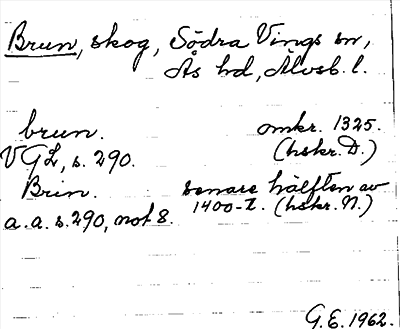 Brun, skog, Södra Vings sn,
Ås hd, Älvsb. l.
brun. omkr. 1325.
VGL, s. 290. (hskr. D.)
Brin. senare hälften av
a.a. s. 290, not 8. 1400-t. (hskr. N.)
G.E. 1962.